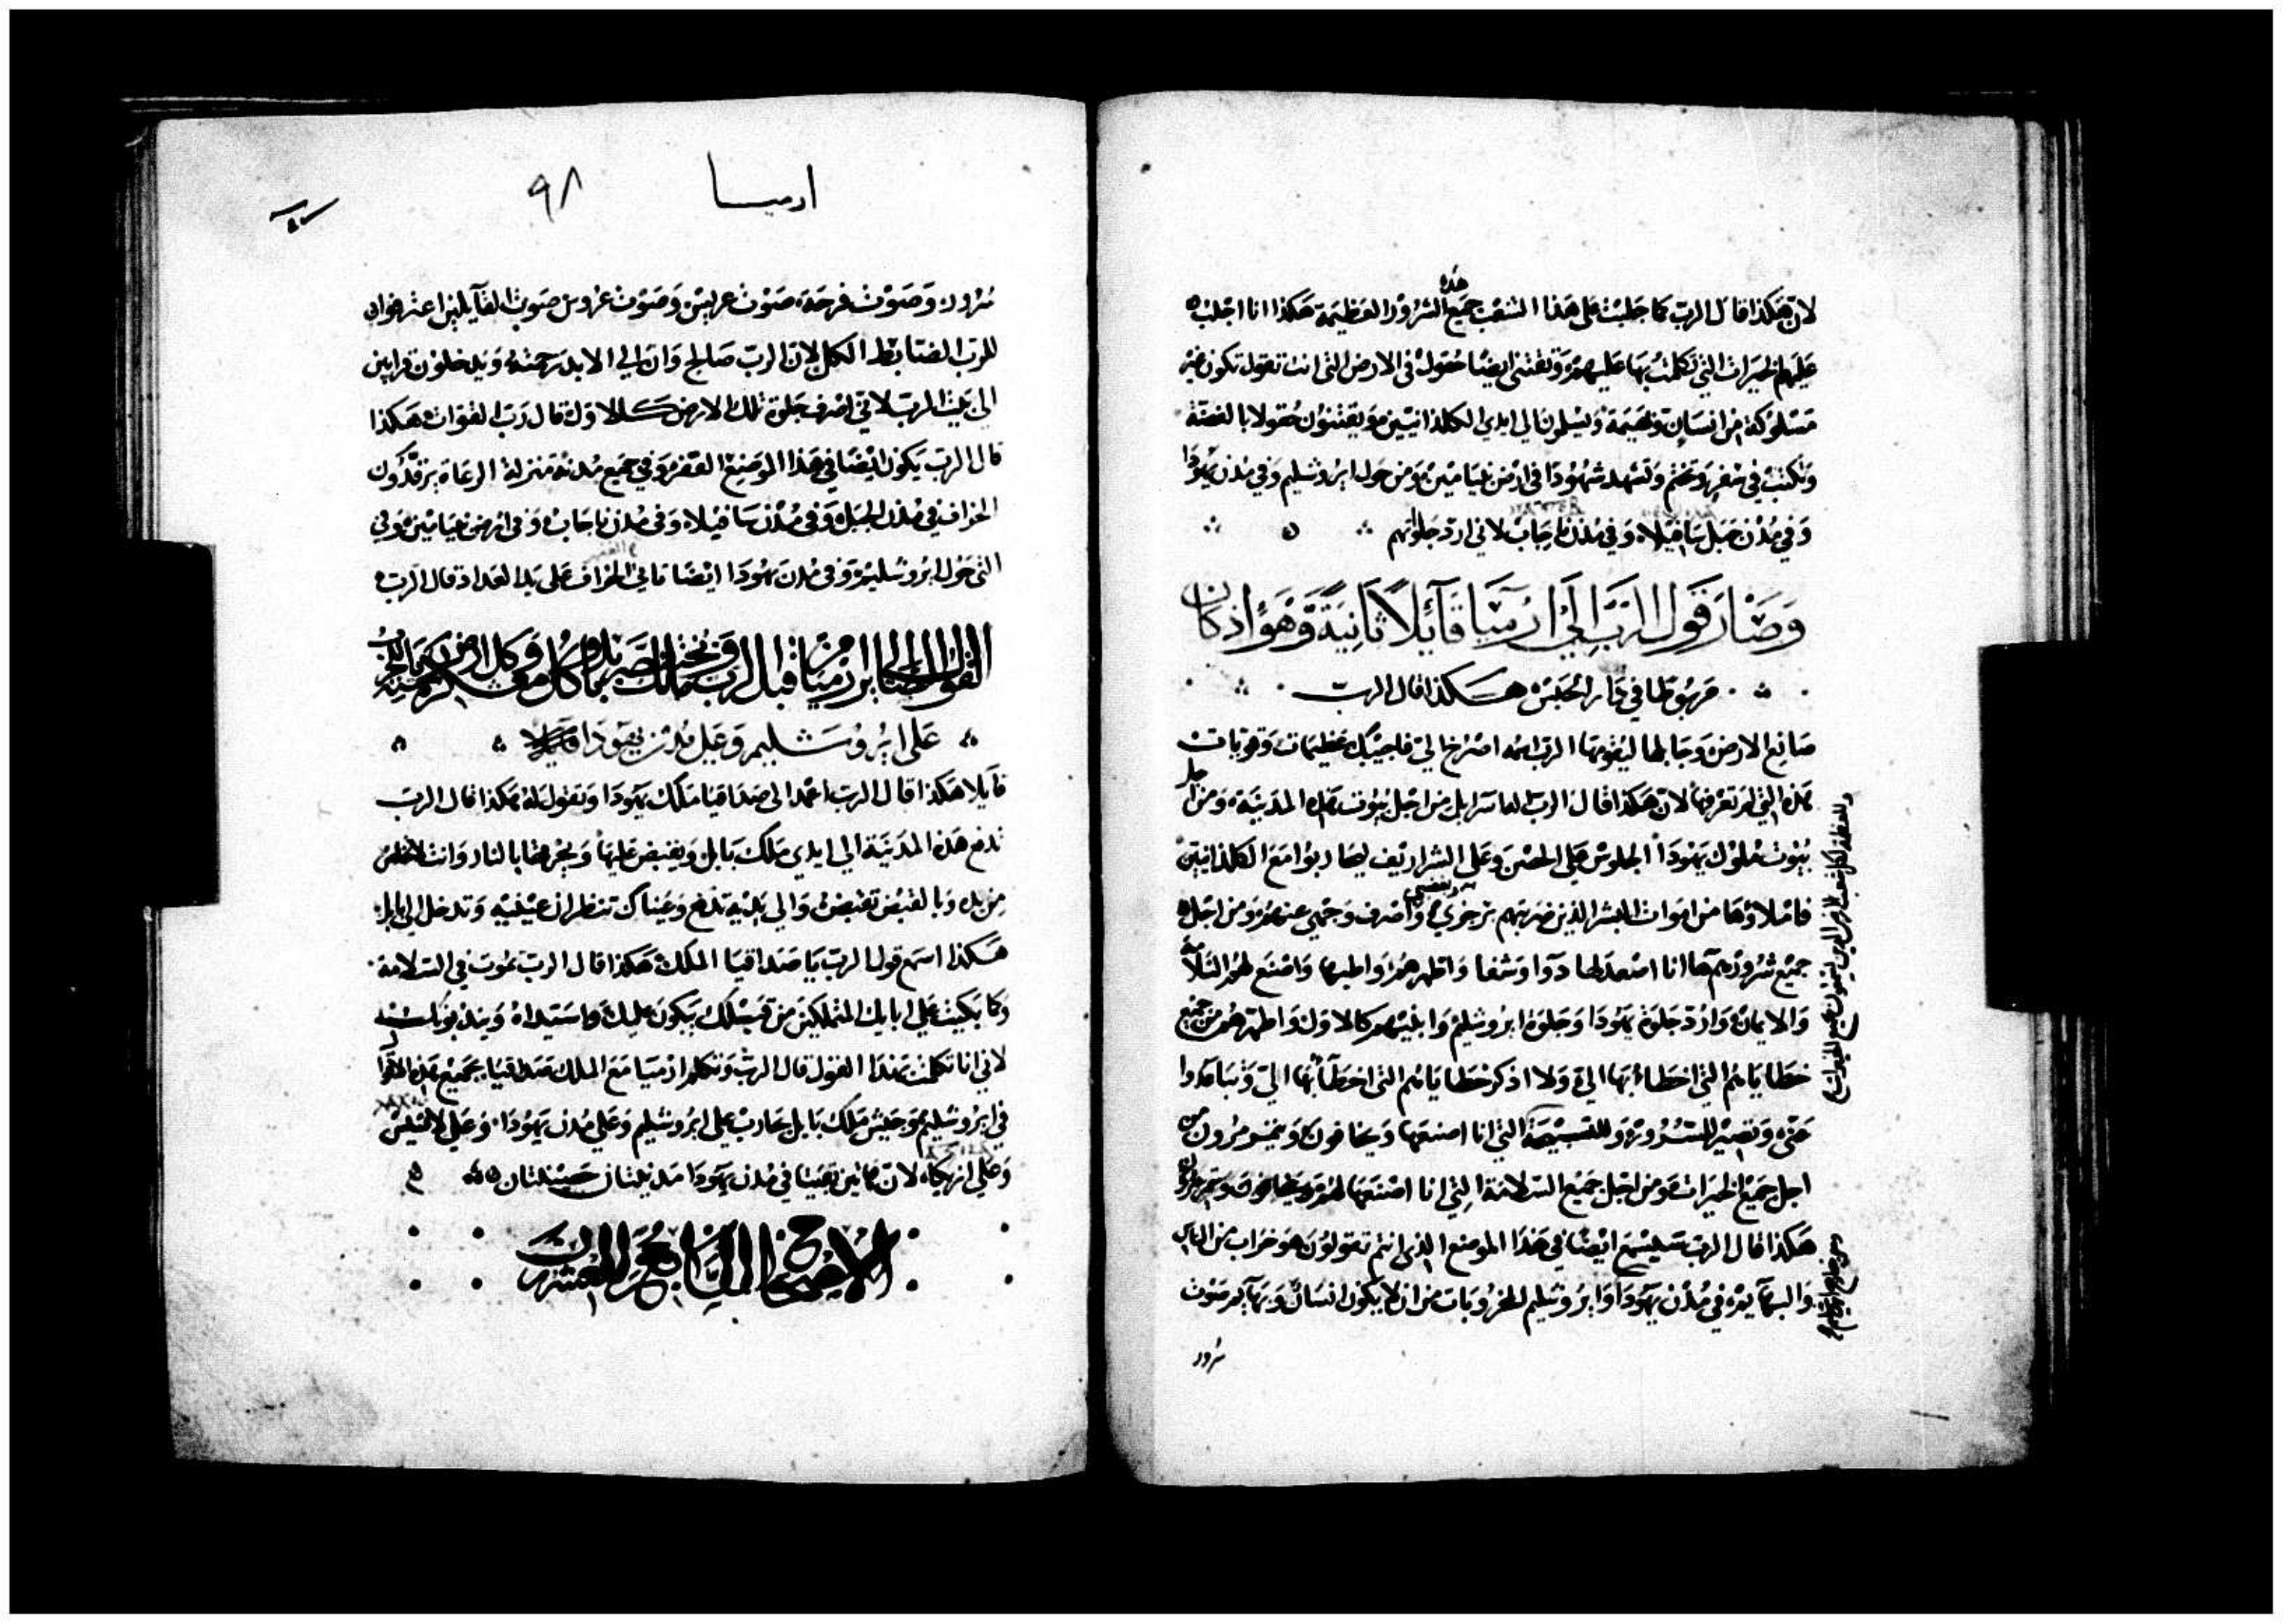 لان هكذا قال الرب كما جلبت على هذا الشعب جميع هذه الشرور العظيمة هكذا انا اجلب
عليهم الخيرات التي تكلمت بها عليهم وتقتنى ايضا حقول في الارض التي انت تقول تكون غير
مسلوكة من انسان وبهيمة ويسلمون الي ايدي الكلدانيين ويقتنون حقولا بالفضة
وتكتب في سفر وتختم وتشهد شهودا في ارض بنيامين ومن حول ايروشليم وفي مدن يهودا
وفي مدن جبل سافيلا وفي مدن ناجاب لاني ارد جلوتهم
وصار قول الرب الي ارميا قائلا ثانية وهو اذ كان
مربوطا في دار الحبس هكذا قال الرب
صانع الارض وجابلها ليقومها الرب اسمه اصرخ الي فاجيبك عظيمات وقويات
هذه التي لم تعرفها لان هكذا قال الرب اله اسرايل من اجل بيوت هذه المدينة ومن اجل
بيوت ملوك يهودا الجلوس علي الحصن وعلى الشراريف ليحاربوا مع الكلدانيين
فاملاوها من اموات البشر الذين ضربتهم برجزي واصرف وجهي عنهم ومن اجل
جميع شرورهم ها انا اصعد لها دوا وشفا واظهر لهم واطببها واصنع لهم السلامة
والايمان وارد جلوة يهودا وجلوة ايروشليم وابنيهم كالاول واطهرهم من جميع
خطاياهم التي اخطاوا بها الي ولا اذكر خطاياهم التي اخطأوا بها الي وتباعدوا
عني وتصير للسرور وللتسبحة التي انا اصنعها ويخافون ويتمرمرون من
اجل جميع الخيرات ومن اجل جميع السلامة التي انا اصنعها لهم
هكذا قال الرب سيسمع ايضا في هذا الموضع الذي انتم تقولون هو خراب من الناس
والبهايم في مدن يهودا وايروشليم الخروبات من ان لا يكون انسان وبهايم صوت
سرور
ارميا ٩٨
سرور وصوت فرحة صوت عريس وصوت عروس صوت القآيلين اعترفوا
للرب الضابط الكل لان الرب صالح وان الي الابد رحمته ويدخلون قرابين
الي بيت الرب لاني اصرف جلوة تلك الارض كالاول قال رب القوات هكذا
قال الرب يكون ايضا في هذا الموضع القفر وفي جميع مدنه منزلة الرعاة يرقدون
الخراف في مدن الجبل وفي مدن سافيلا وفي مدن ناجاب وفي ارض بنيامين وفي
التي حول ايروشليم وفي مدن يهودا ايضا تاتي الخراف على يد العداد قال الرب
القول الصاير الي ارميا من قبل الرب
على ايروشليم وعلى مدن يهودا
قايلا هكذا قال الرب اعمد الى صداقيا ملك يهودا وتقول له هكذا قال الرب
تدفع هذه المدينة الي ايدي ملك بابل ويقبض عليها ويحرقها بالنار وانت لا تخلص
من يده وبالقبض تقبض والي يديه تدفع وعيناك تنظران عينيه وتدخل الي بابل
هكذا اسمع قول الرب يا صداقيا الملك هكذا قال الرب تموت في السلامة
وكما بكيت على ابايك المتملكين من قبلك يبكون عليك واسيداه ويندبونك
لاني انا تكلمت بهذا القول قال الرب وتكلم ارميا مع الملك صداقيا بجميع هذه الاقوال
في ايروشليم وجيش ملك بابل يحارب على ايروشليم وعلى مدن يهودا وعلي لاخيس
وعلي ازيكا لان هاتين بقيتا في مدن يهودا مدينتان حصينتان
الاصحاح السابع والعشرون